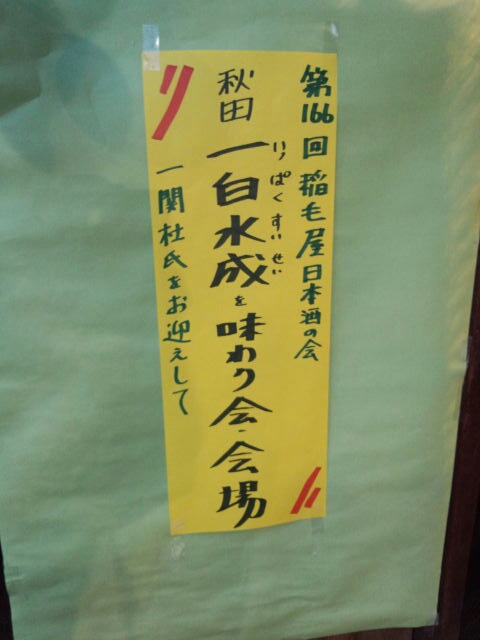 第166回 稲毛屋日本酒の会
秋田 一白水成を味わう会・会場
いっぱくすいせい
一関杜氏をお迎えして